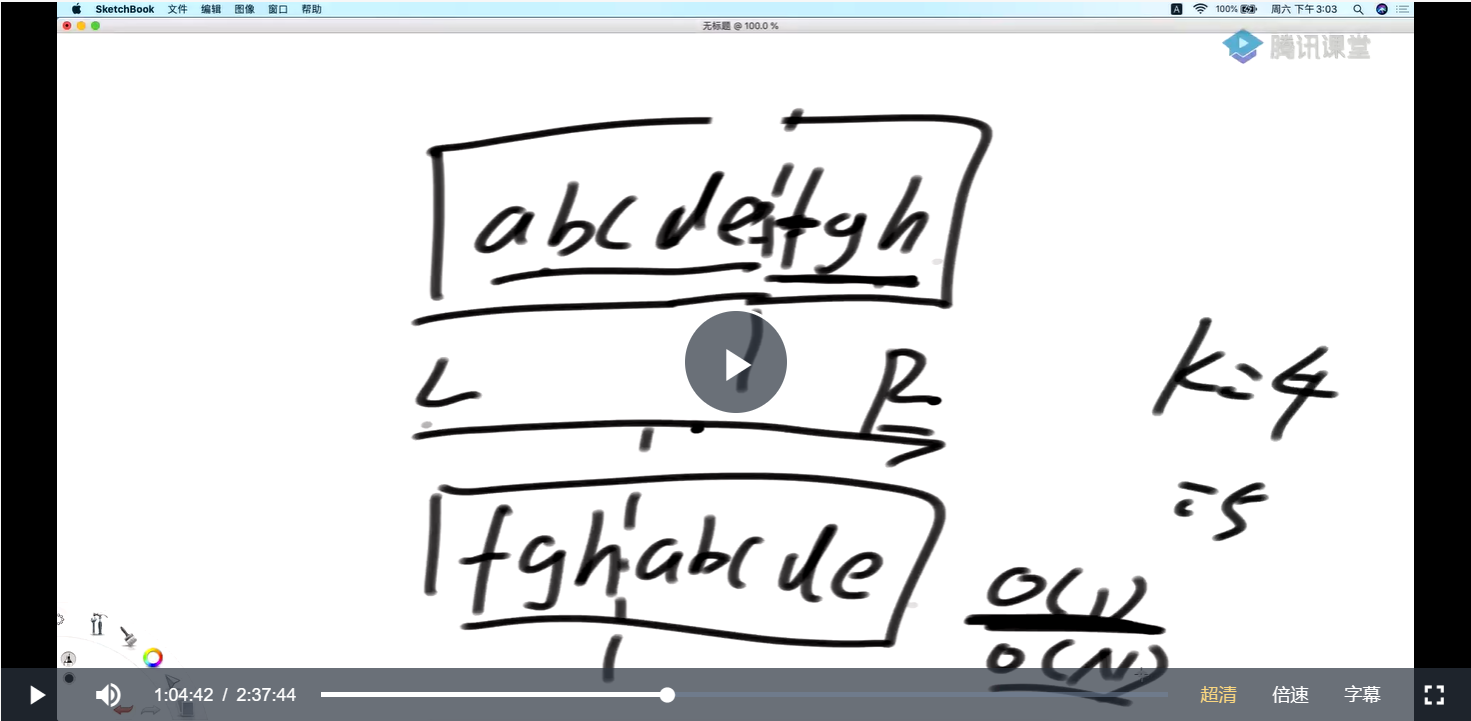 SketchBook 文件 编辑 图像 窗口 帮助
A 100% 周六 下午3:03
无标题 @ 100.0 %
腾讯课堂
abcdefgh
L R
k=4
=5
fghabcde
O(1)
O(N)
1:04:42 / 2:37:44 超清 倍速 字幕